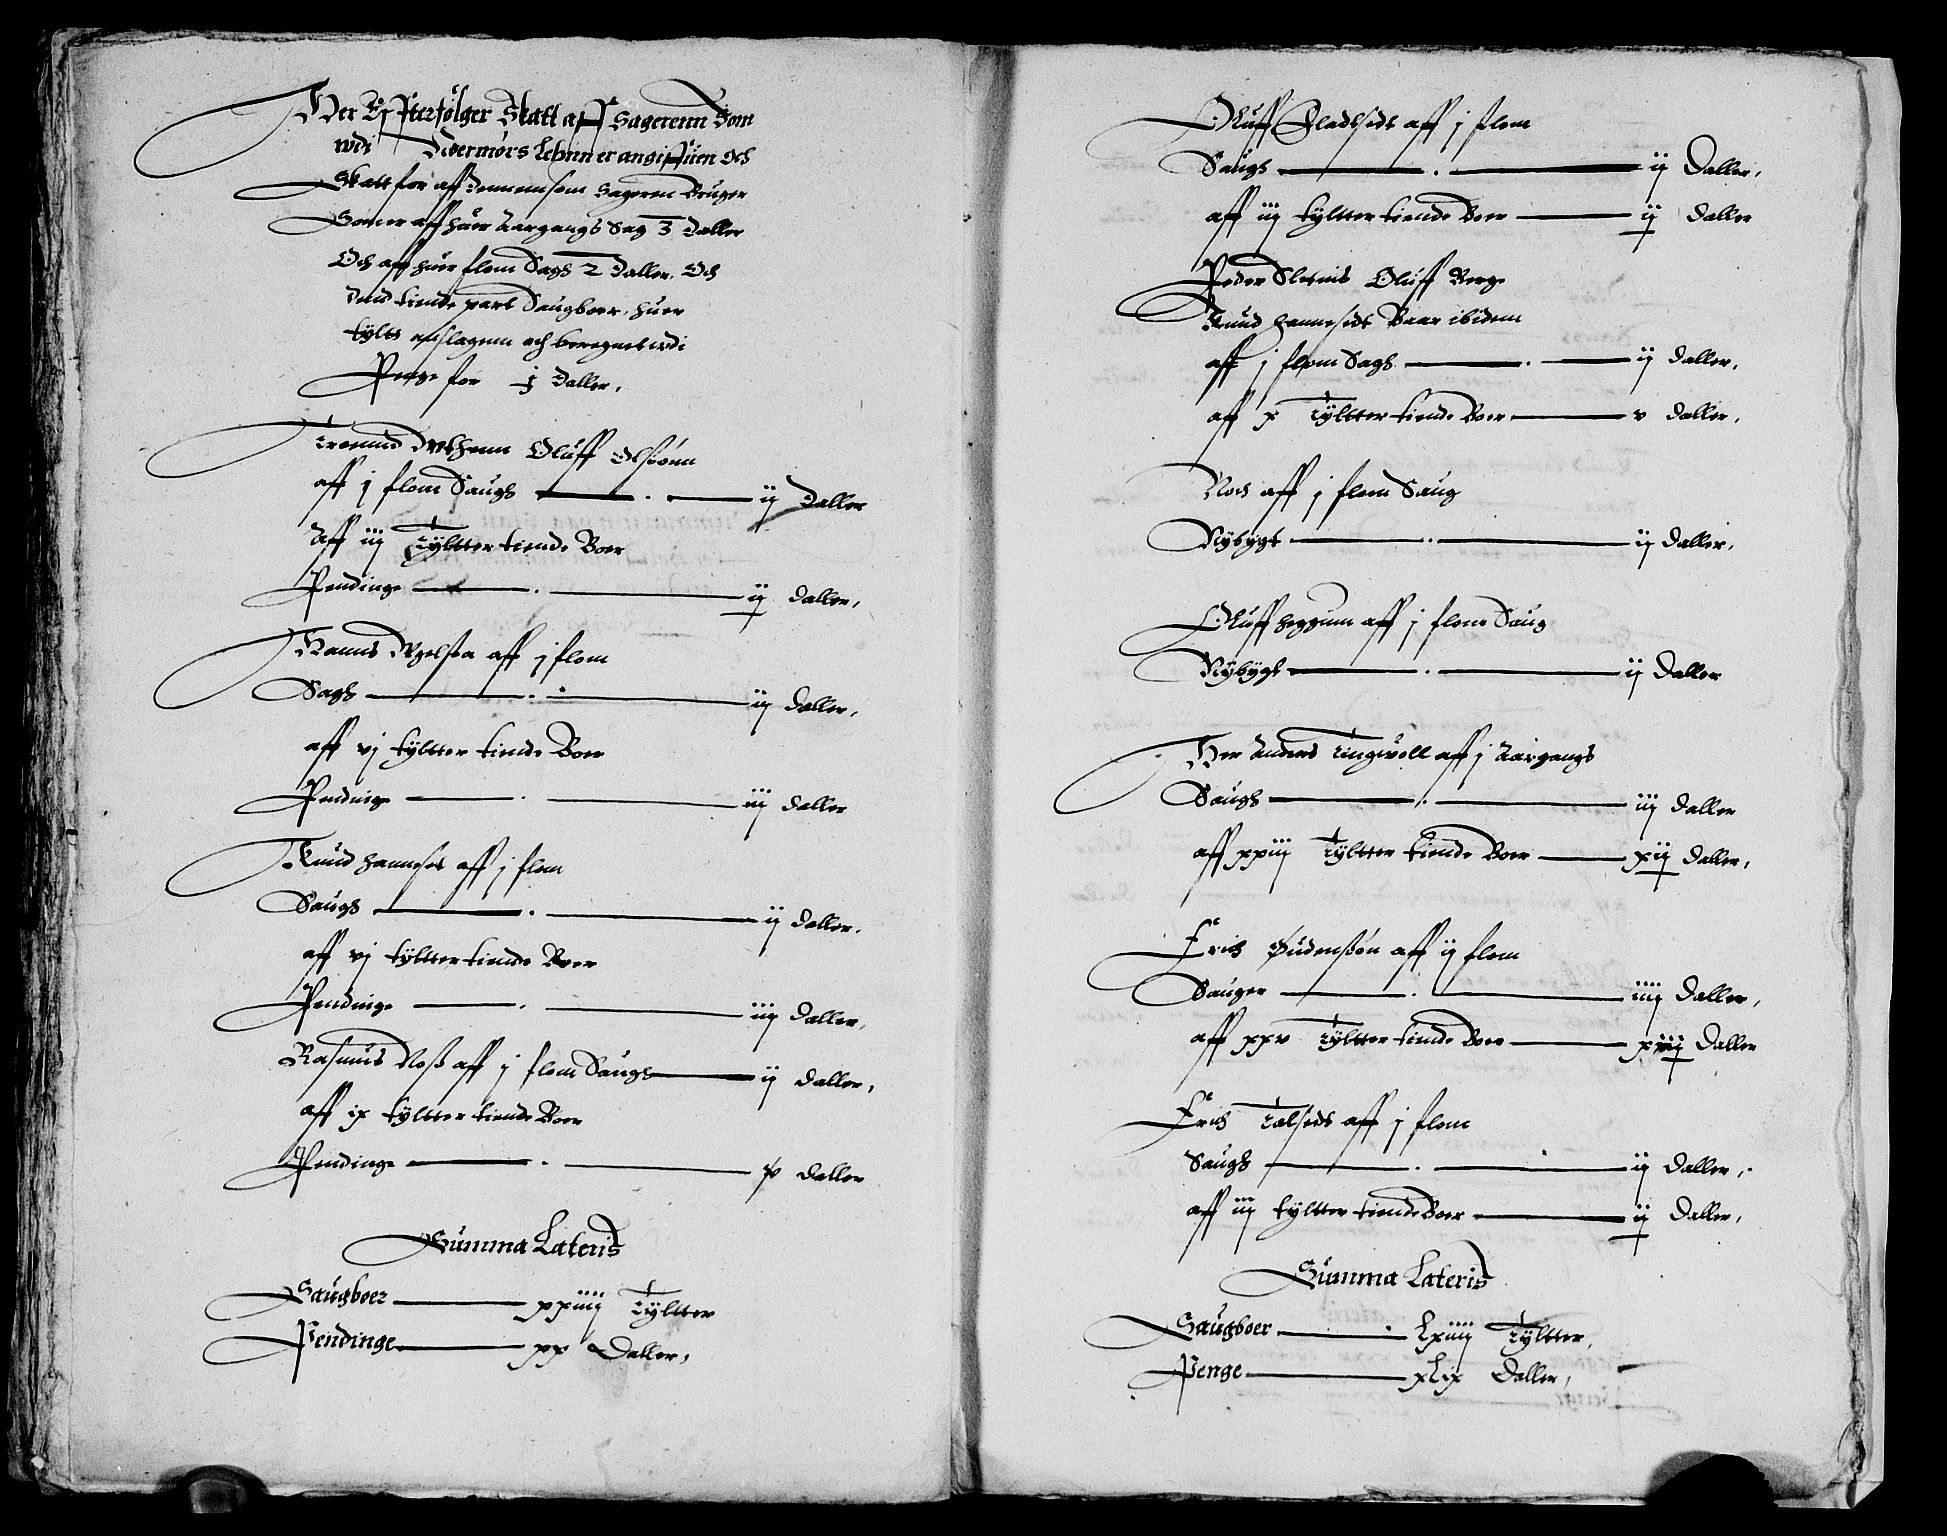 Her Effterfølger Skatt aff Sagerenn Som
wdi Nordmørs Lehnn er angiffuen Och
Skatt for aff dennem som Sageren Bruger
Som er aff huer Aargangs Sag 3 Daller
Och aff huer flom Sagh 2 Daller. Och
dend tiende part Saugboer, huer
tylts anslagenn och beregnet wdi
Penge for Daller.
Oluff Olssønn
aff j flom Saugh ij Daller
Aff iiij Tyltter tiende Boer
Pendinge ij daller,
Hanns aff j flom
Sagh ij daller,
aff vj tyltter tiende Boer
Pendinge iij daller
Knud aff j flom
Saugh ij daller,
aff vj tyltter tiende Boer
Pendinge iij daller,
Rasmus Noss aff j flom Saugh ij daller,
aff ix tyltter tiende Boer
Pendinge daller
Summa Lateris
Saugboer xxiiij Tyltter
Pendinge xx Daller,
Oluff aff j flom
Saugh ij Daller,
aff iiij tyltter tiende Boer ij daller
Peder Oluff Berge
Knud ibidem
aff j flom Sagh ij daller,
aff x Tyltter tiende Boer v daller,
Noch aff j flom Saug
Nybygt ij daller,
Oluff heggum aff j flom Saug
Nybygt ij daller
Her Anders Tingwoll aff j Aargangs
Saugh iij daller
aff xxiij Tyltter tiende Boer xij daller,
Erich aff ij flom
Sauger iiij daller,
aff xxv Tyltter tiende Boer daller
Erich aff j flom
Saugh ij daller,
aff iij tyltter tiende Boer ij daller,
Summa Lateris
Saugboer Lxiiij Tyltter,
Penge xLix Daller,